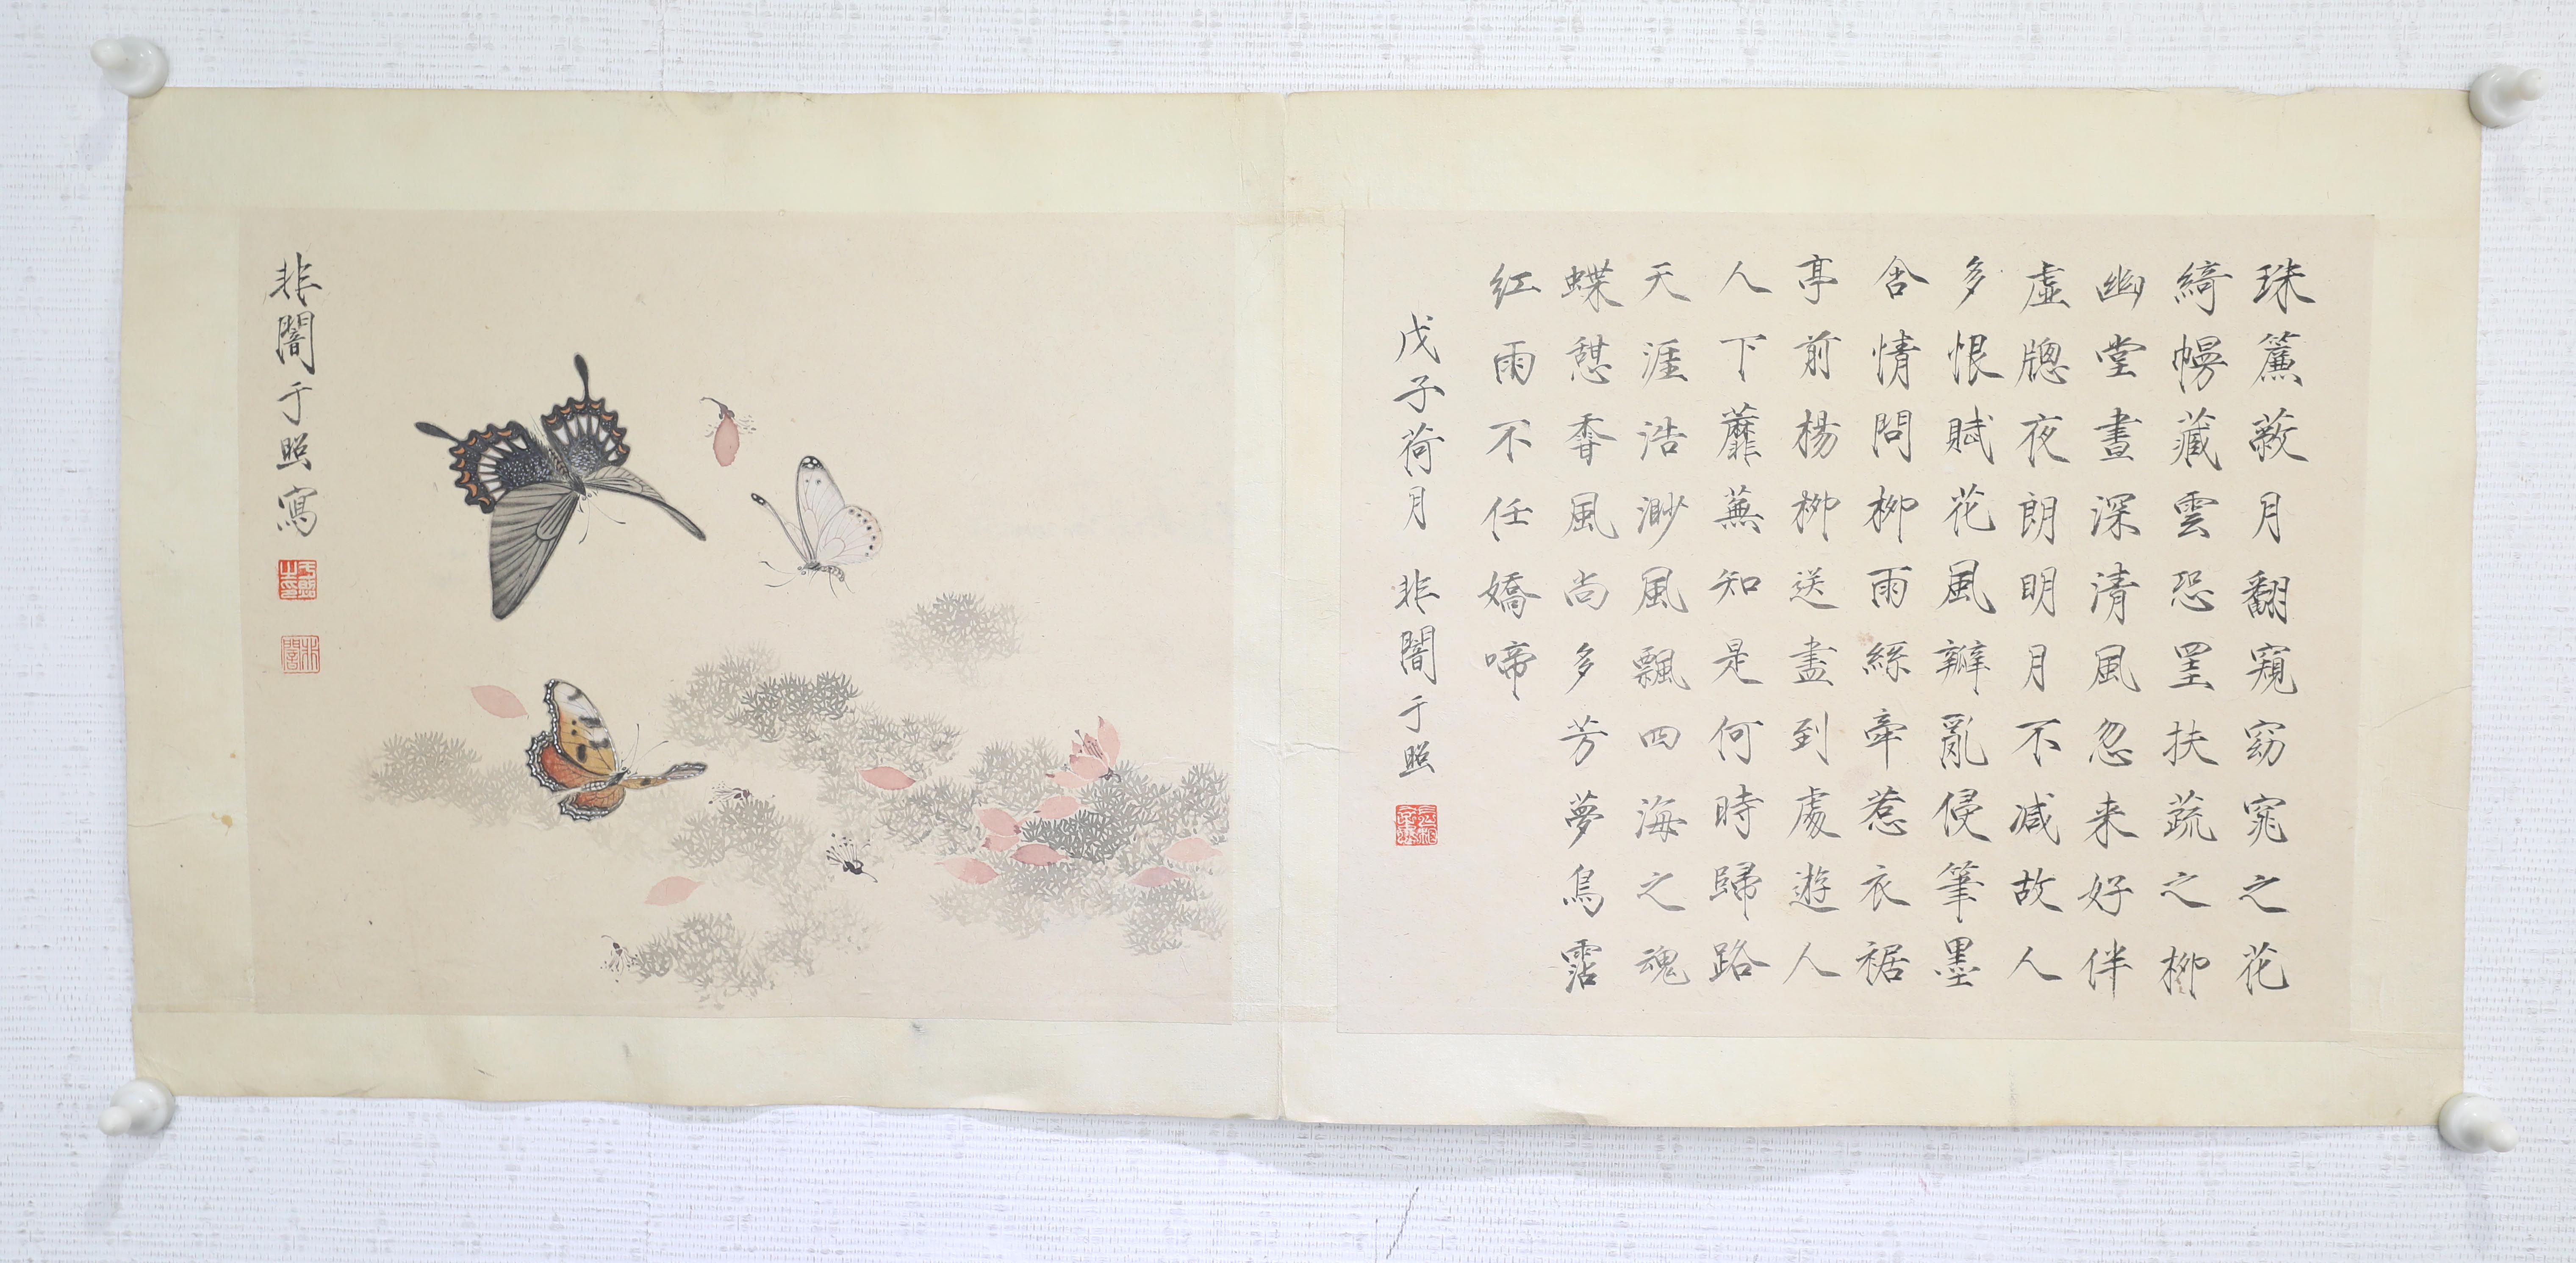 珠簾蔽月翻窺窈窕之花
綺幔藏雲恐罣扶蔬之柳
幽堂晝深清風忽来好伴
虛牎夜朗明月不減故人
多恨賦花風瓣亂侵筆墨
含情問柳雨絲牽惹衣裾
亭前楊柳送盡到處遊人
人下蘼蕪知是何時歸路
天涯浩渺風飄四海之魂
蝶憩香風尚多芳夢鳥霑
紅雨不任嬌啼
戊子荷月 非闇于照
非闇于照寫
于照之印
非闇